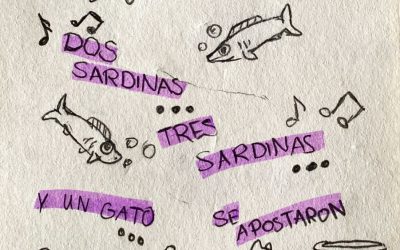 DOS
SARDINAS
...
TRES
SARDINAS
...
Y UN GATO
...
SE
APOSTARON